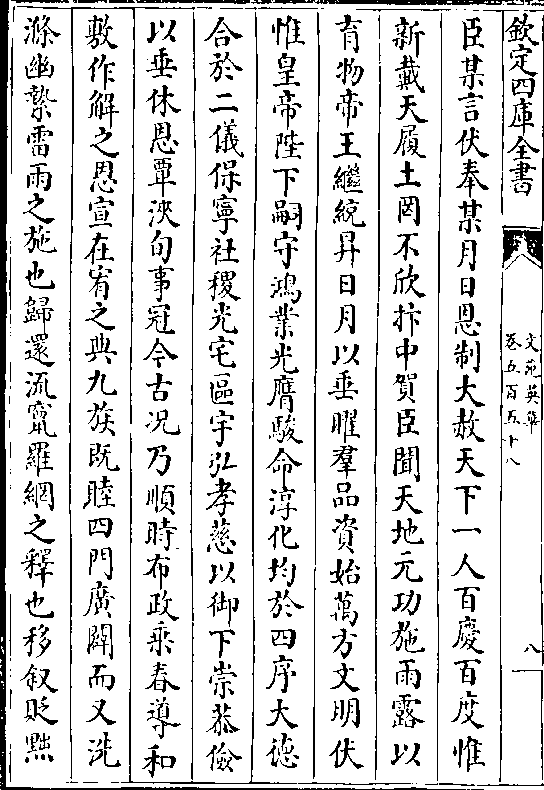 欽定四庫全書
文苑英華
卷五百五十八
八
臣某言伏奉某月日恩制大赦天下一人百慶百度惟
新戴天履土罔不欣抃中賀臣聞天地元功施雨露以
育物帝王繼統昇日月以垂曜羣品資始萬方文明伏
惟皇帝陛下嗣守鴻業光膺駿命淳化均於四序大德
合於二儀保寧社稷光宅區宇弘孝慈以御下崇恭儉
以垂休恩覃浹旬事冠今古况乃順時布政乘春導和
敷作解之恩宣在宥之典九族既睦四門廣闢而又洗
滌幽縶雷雨之施也歸還流竄羅網之釋也移叙貶黜